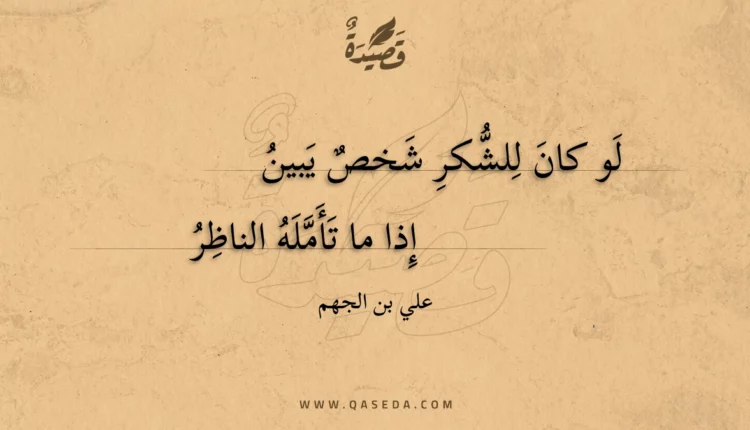 قَصِيدَةٌ
لَو كانَ لِلشُّكرِ شَخصٌ يَبينُ
إِذا ما تَأَمَّلَهُ الناظِرُ
علي بن الجهم
WWW.QASEDA.COM